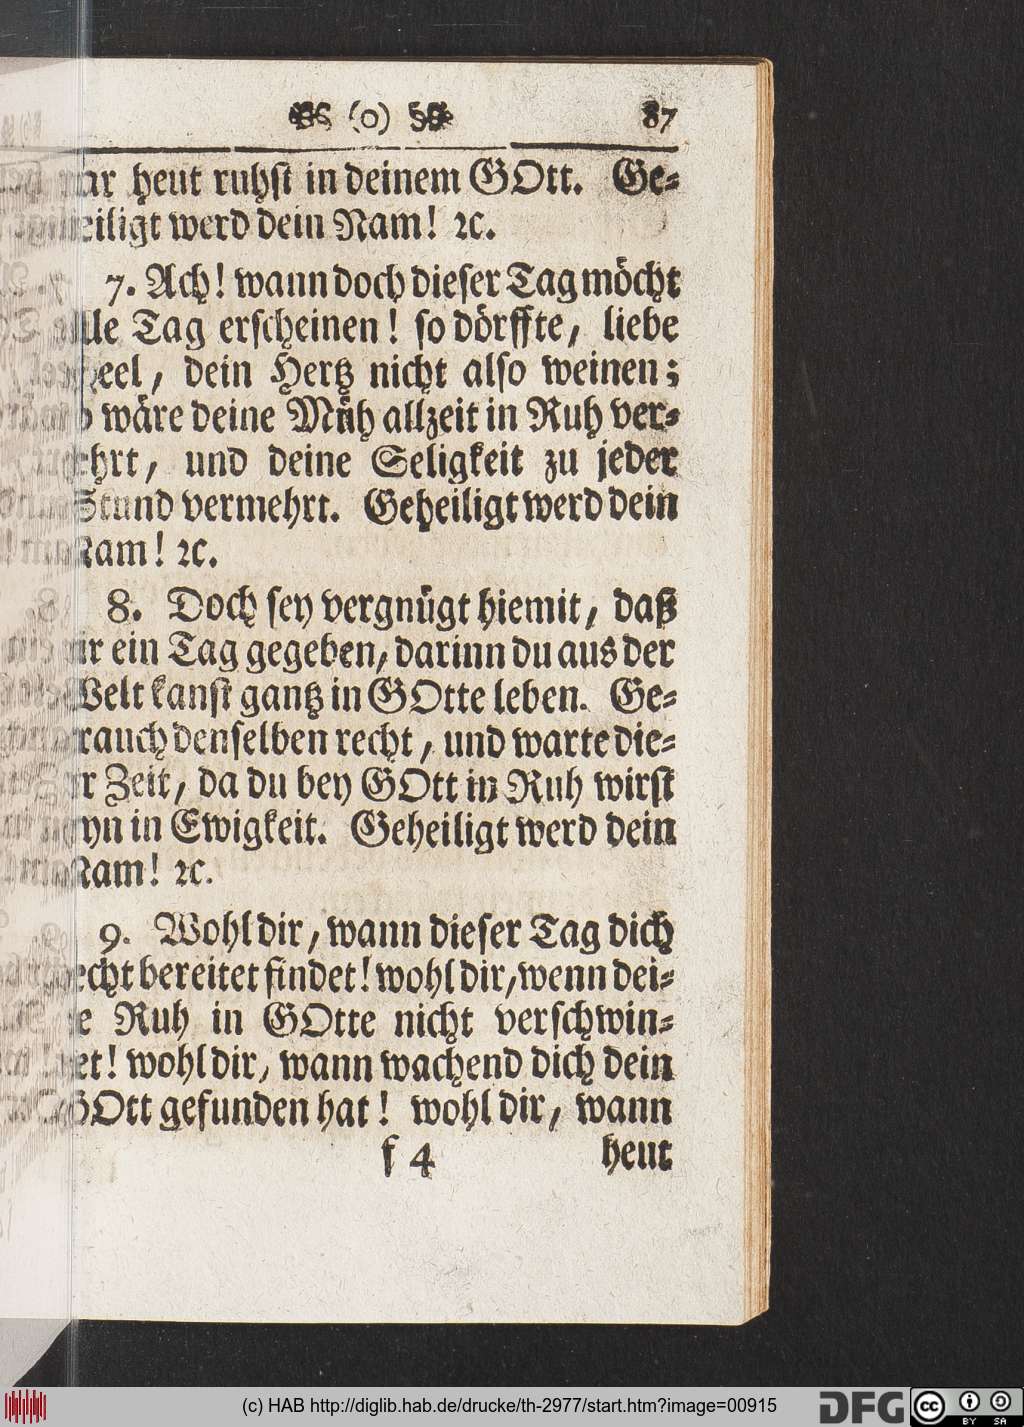 (o) 87
nur heut ruhſt in deinem GOtt. Ge-
heiligt werd dein Nam! ꝛc.
7. Ach! wann doch dieſer Tag möcht
alle Tag erſcheinen! ſo dörffte, liebe
Seel, dein Hertz nicht alſo weinen;
ſo wäre deine Müh allzeit in Ruh ver-
kehrt, und deine Seligkeit zu jeder
Stund vermehrt. Geheiligt werd dein
Nam! ꝛc.
8. Doch ſey vergnügt hiemit, daß
dir ein Tag gegeben, darinn du aus der
Welt kanſt gantz in GOtte leben. Ge-
brauch denſelben recht, und warte die-
ſer Zeit, da du bey GOtt in Ruh wirſt
ſeyn in Ewigkeit. Geheiligt werd dein
Nam! ꝛc.
9. Wohl dir, wann dieſer Tag dich
recht bereitet findet! wohl dir, wenn dei-
ne Ruh in GOtte nicht verſchwin-
det! wohl dir, wann wachend dich dein
GOtt gefunden hat! wohl dir, wann
f 4 heut
(c) HAB http://diglib.hab.de/drucke/th-2977/start.htm?image=00915
DFG
cc BY SA